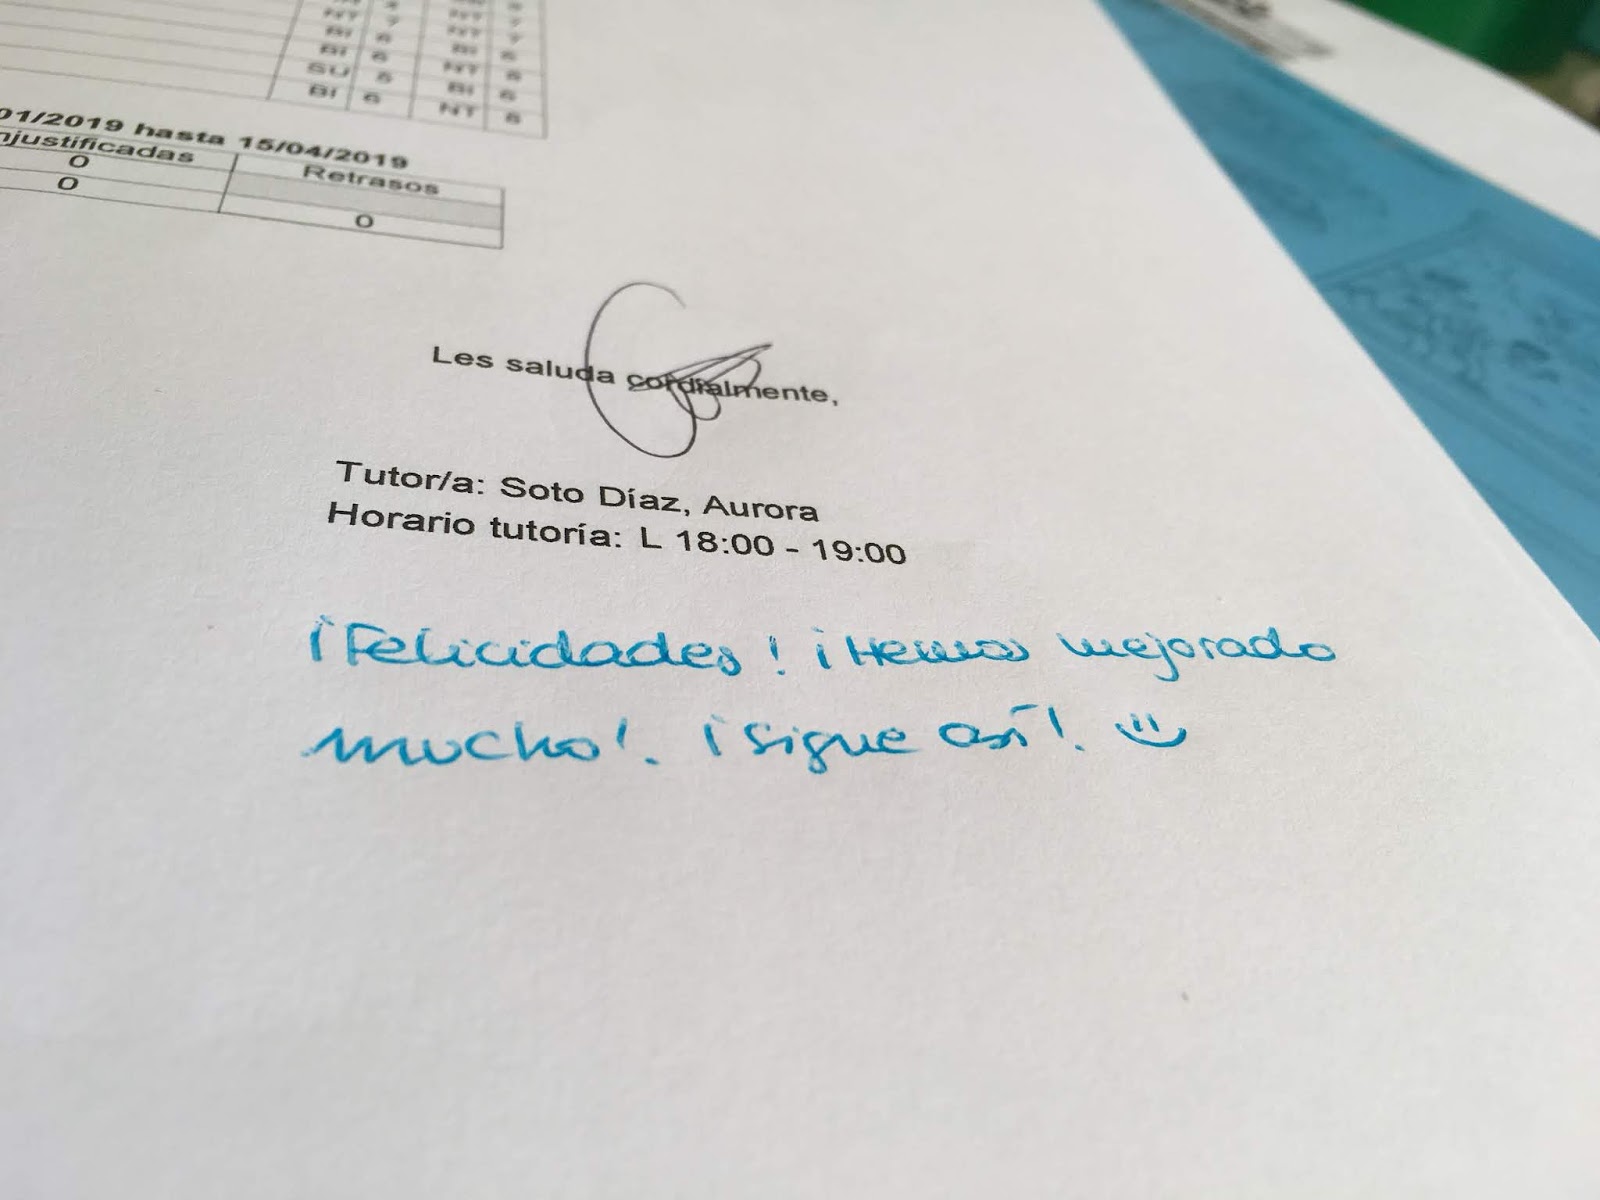 NT 7 NT 7
BI 6 BI 6
BI 6 NT 8
SU 5 BI 6
BI 6 NT 8
01/2019 hasta 15/04/2019
njustificadas Retrasos
0
0 0
Les saluda cordialmente,
Tutor/a: Soto Díaz, Aurora
Horario tutoría: L 18:00 - 19:00
¡Felicidades! ¡Hemos mejorado
mucho!. ¡Sigue así!.